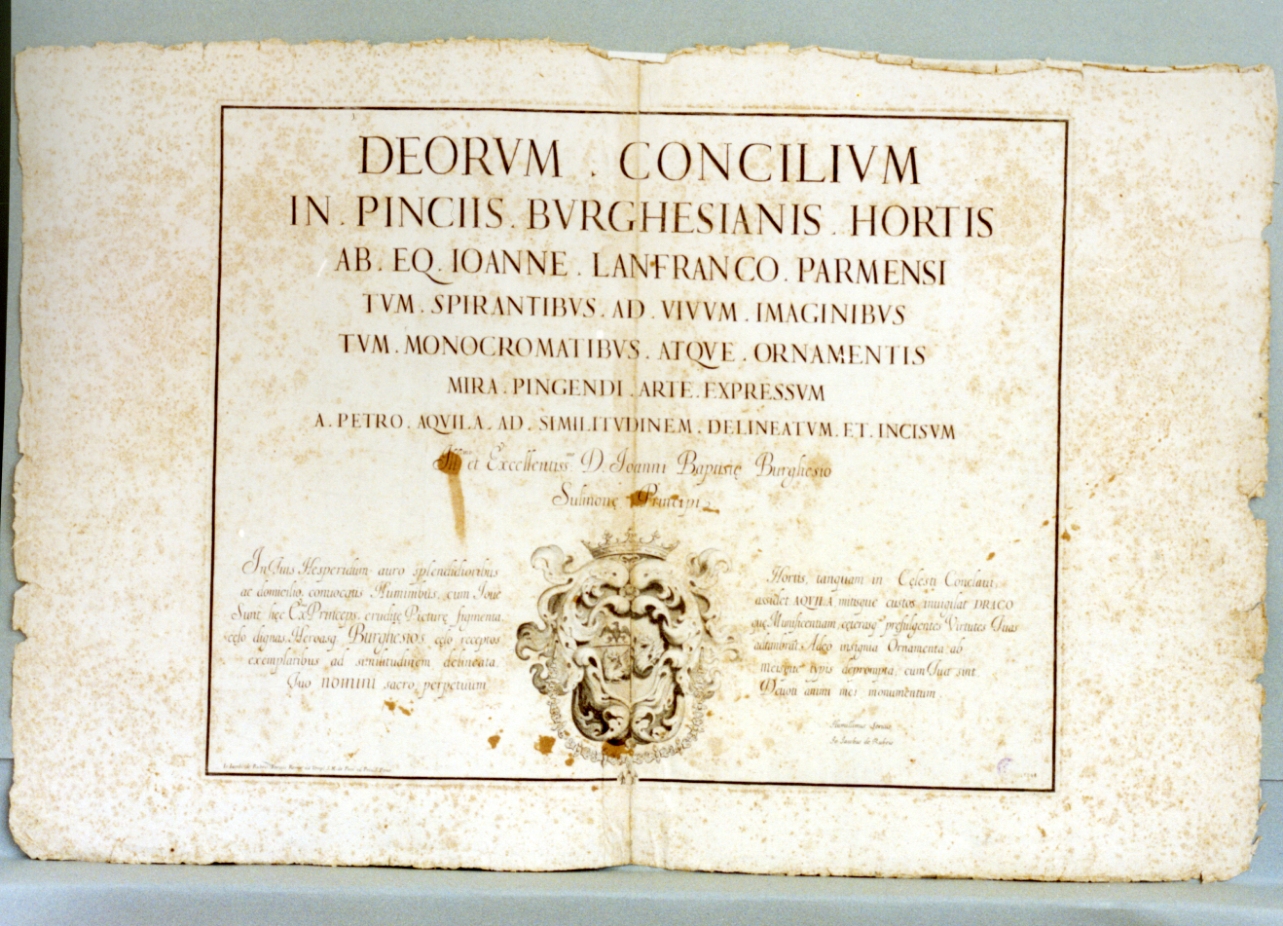 DEORVM . CONCILIVM
IN . PINCIIS . BVRGHESIANIS . HORTIS
AB . EQ . IOANNE . LANFRANCO . PARMENSI
TVM . SPIRANTIBVS . AD . VIVVM . IMAGINIBVS
TVM . MONOCROMATIBVS . ATQVE . ORNAMENTIS
MIRA . PINGENDI . ARTE . EXPRESSVM
A . PETRO . AQVILA . AD . SIMILITVDINEM . DELINEATVM . ET . INCISVM
et Excellentiss.mo D. Ioanni Baptistę Burghesio
Sulmonę Principi
In Tuis Hesperidum auro splendidioribus
ac domicilio, conuocatis Numinibus, cum Ioue
Sunt hęc Ex.e Princeps, eruditę Picturę figmenta
sęclo dignas, Heroasq. Burghesios cęlo receptos
exemplaribus ad similitudinem delineata,
Tuo nomini sacro, perpetuum
Hortis, tanquam in Cęlesti Conclaui,
assidet AQVILA mitisque custos inuigilat DRACO
quę Munificentiam, cęterasq. pręfulgentes Virtutes Tuas
adumbrat. Adeo insignia Ornamenta ab
meisque typis deprompta, cum Tua sint
Deuoti animi mei monumentum